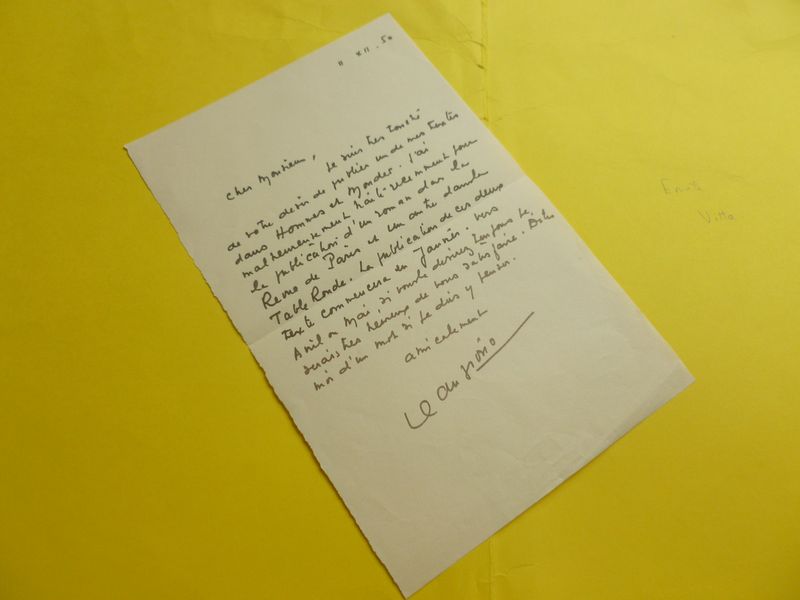 11 XII. 50
Cher Monsieur,
Je suis très touché
de votre désir de publier un de mes textes
dans Hommes et Mondes. J'ai
malheureusement traité récemment pour
la publication d'un roman dans la
Revue de Paris et un autre dans la
Table Ronde. La publication de ces deux
texte commencera en Janvier. Vers
Avril ou Mai si vous le désirez toujours je
serais très heureux de vous satisfaire. Dites
moi d'un mot si je dois y penser.
amicalement
Jean Giono
Vitta